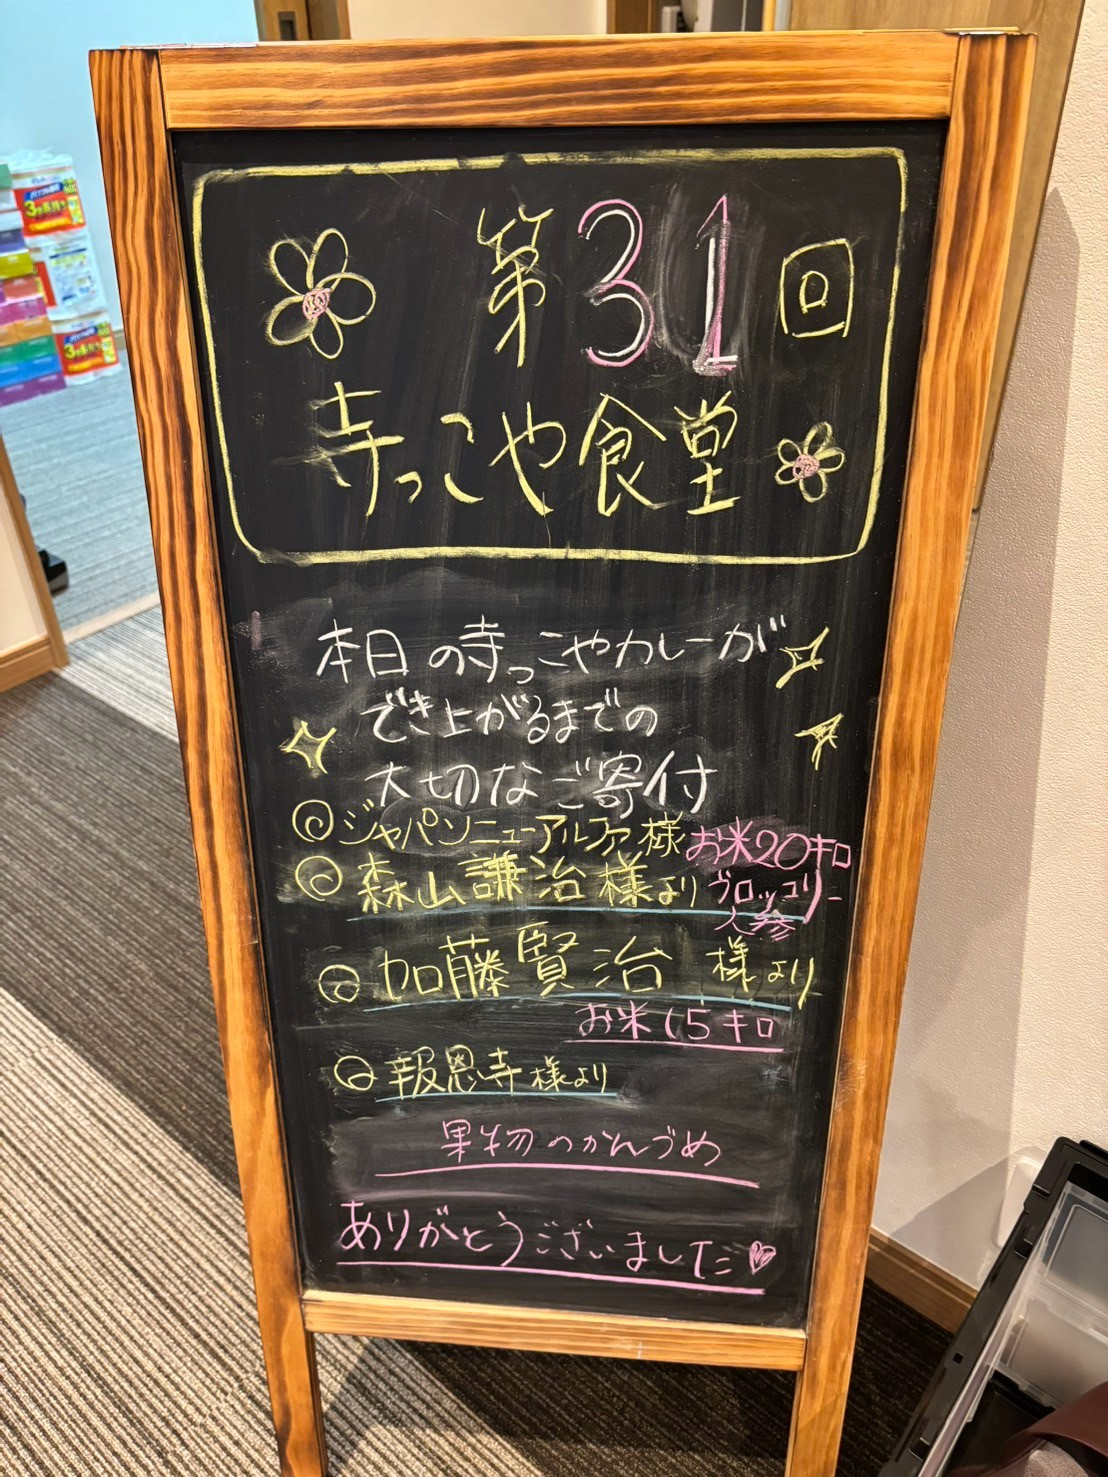 第31回
寺っこや食堂
本日の寺っこやカレーが
でき上がるまでの
大切なご寄付
ジャパンニューアルファ様お米20キロ
森山謙治様よりブロッコリー
人参
加藤賢治様より
お米15キロ
報恩寺様より
果物のかんづめ
ありがとうございました♡